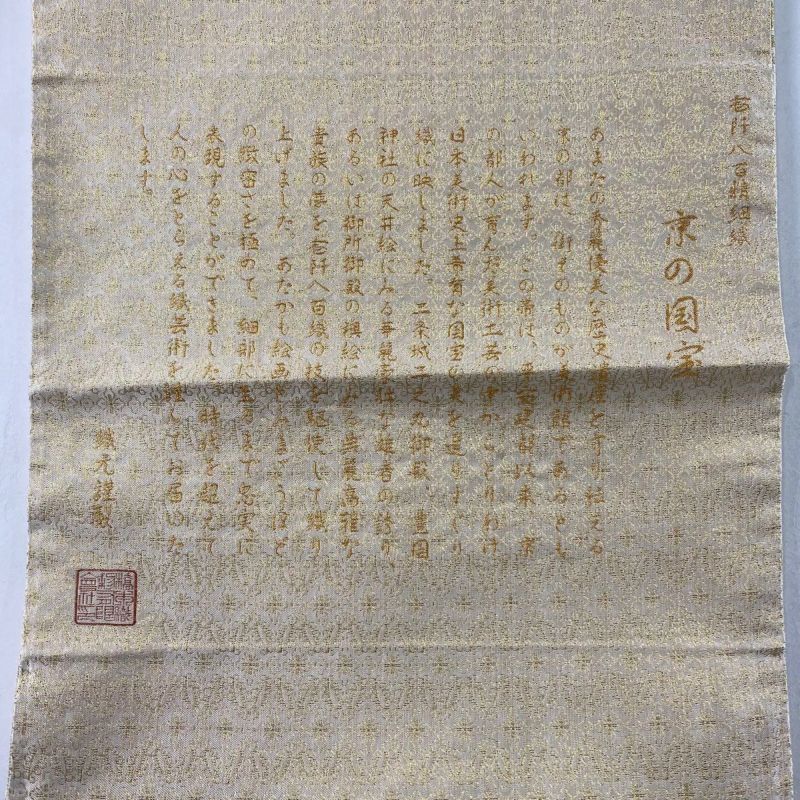 壱阡八百精細織
京の国宝
あまたの秀麗優美な歴史遺産を守り伝える
京の都は、街そのものが美術館であるとも
いわれます。この帯は、平安建都以来、京
の都人が育んだ美術工芸の中からとりわけ
日本美術史上希有な国宝の美を選りすぐり
織に映しました。二条城二之丸御殿、豊国
神社の天井絵にみる華麗豪壮な雄者の誇り、
あるいは御所御殿の襖絵にみる典麗高雅な
貴族の夢を壱阡八百織の技を駆使して織り
上げました。あたかも絵画とみまごうほど
の緻密さを極めて、細部に至るまで忠実に
表現することができました。時代を超えて
人の心をとらえる織芸術を謹んでお届けいた
します。
織元謹製